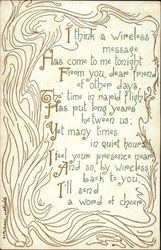 I think a wireless
message
Has come to me tonight
From you, dear friend
of other days.
Tho' time in rapid flight
Has put long years
between us;
Yet many times
in quiet hours
I feel your presence near
And so, by wireless
back to you,
I'll send
a word of cheer.